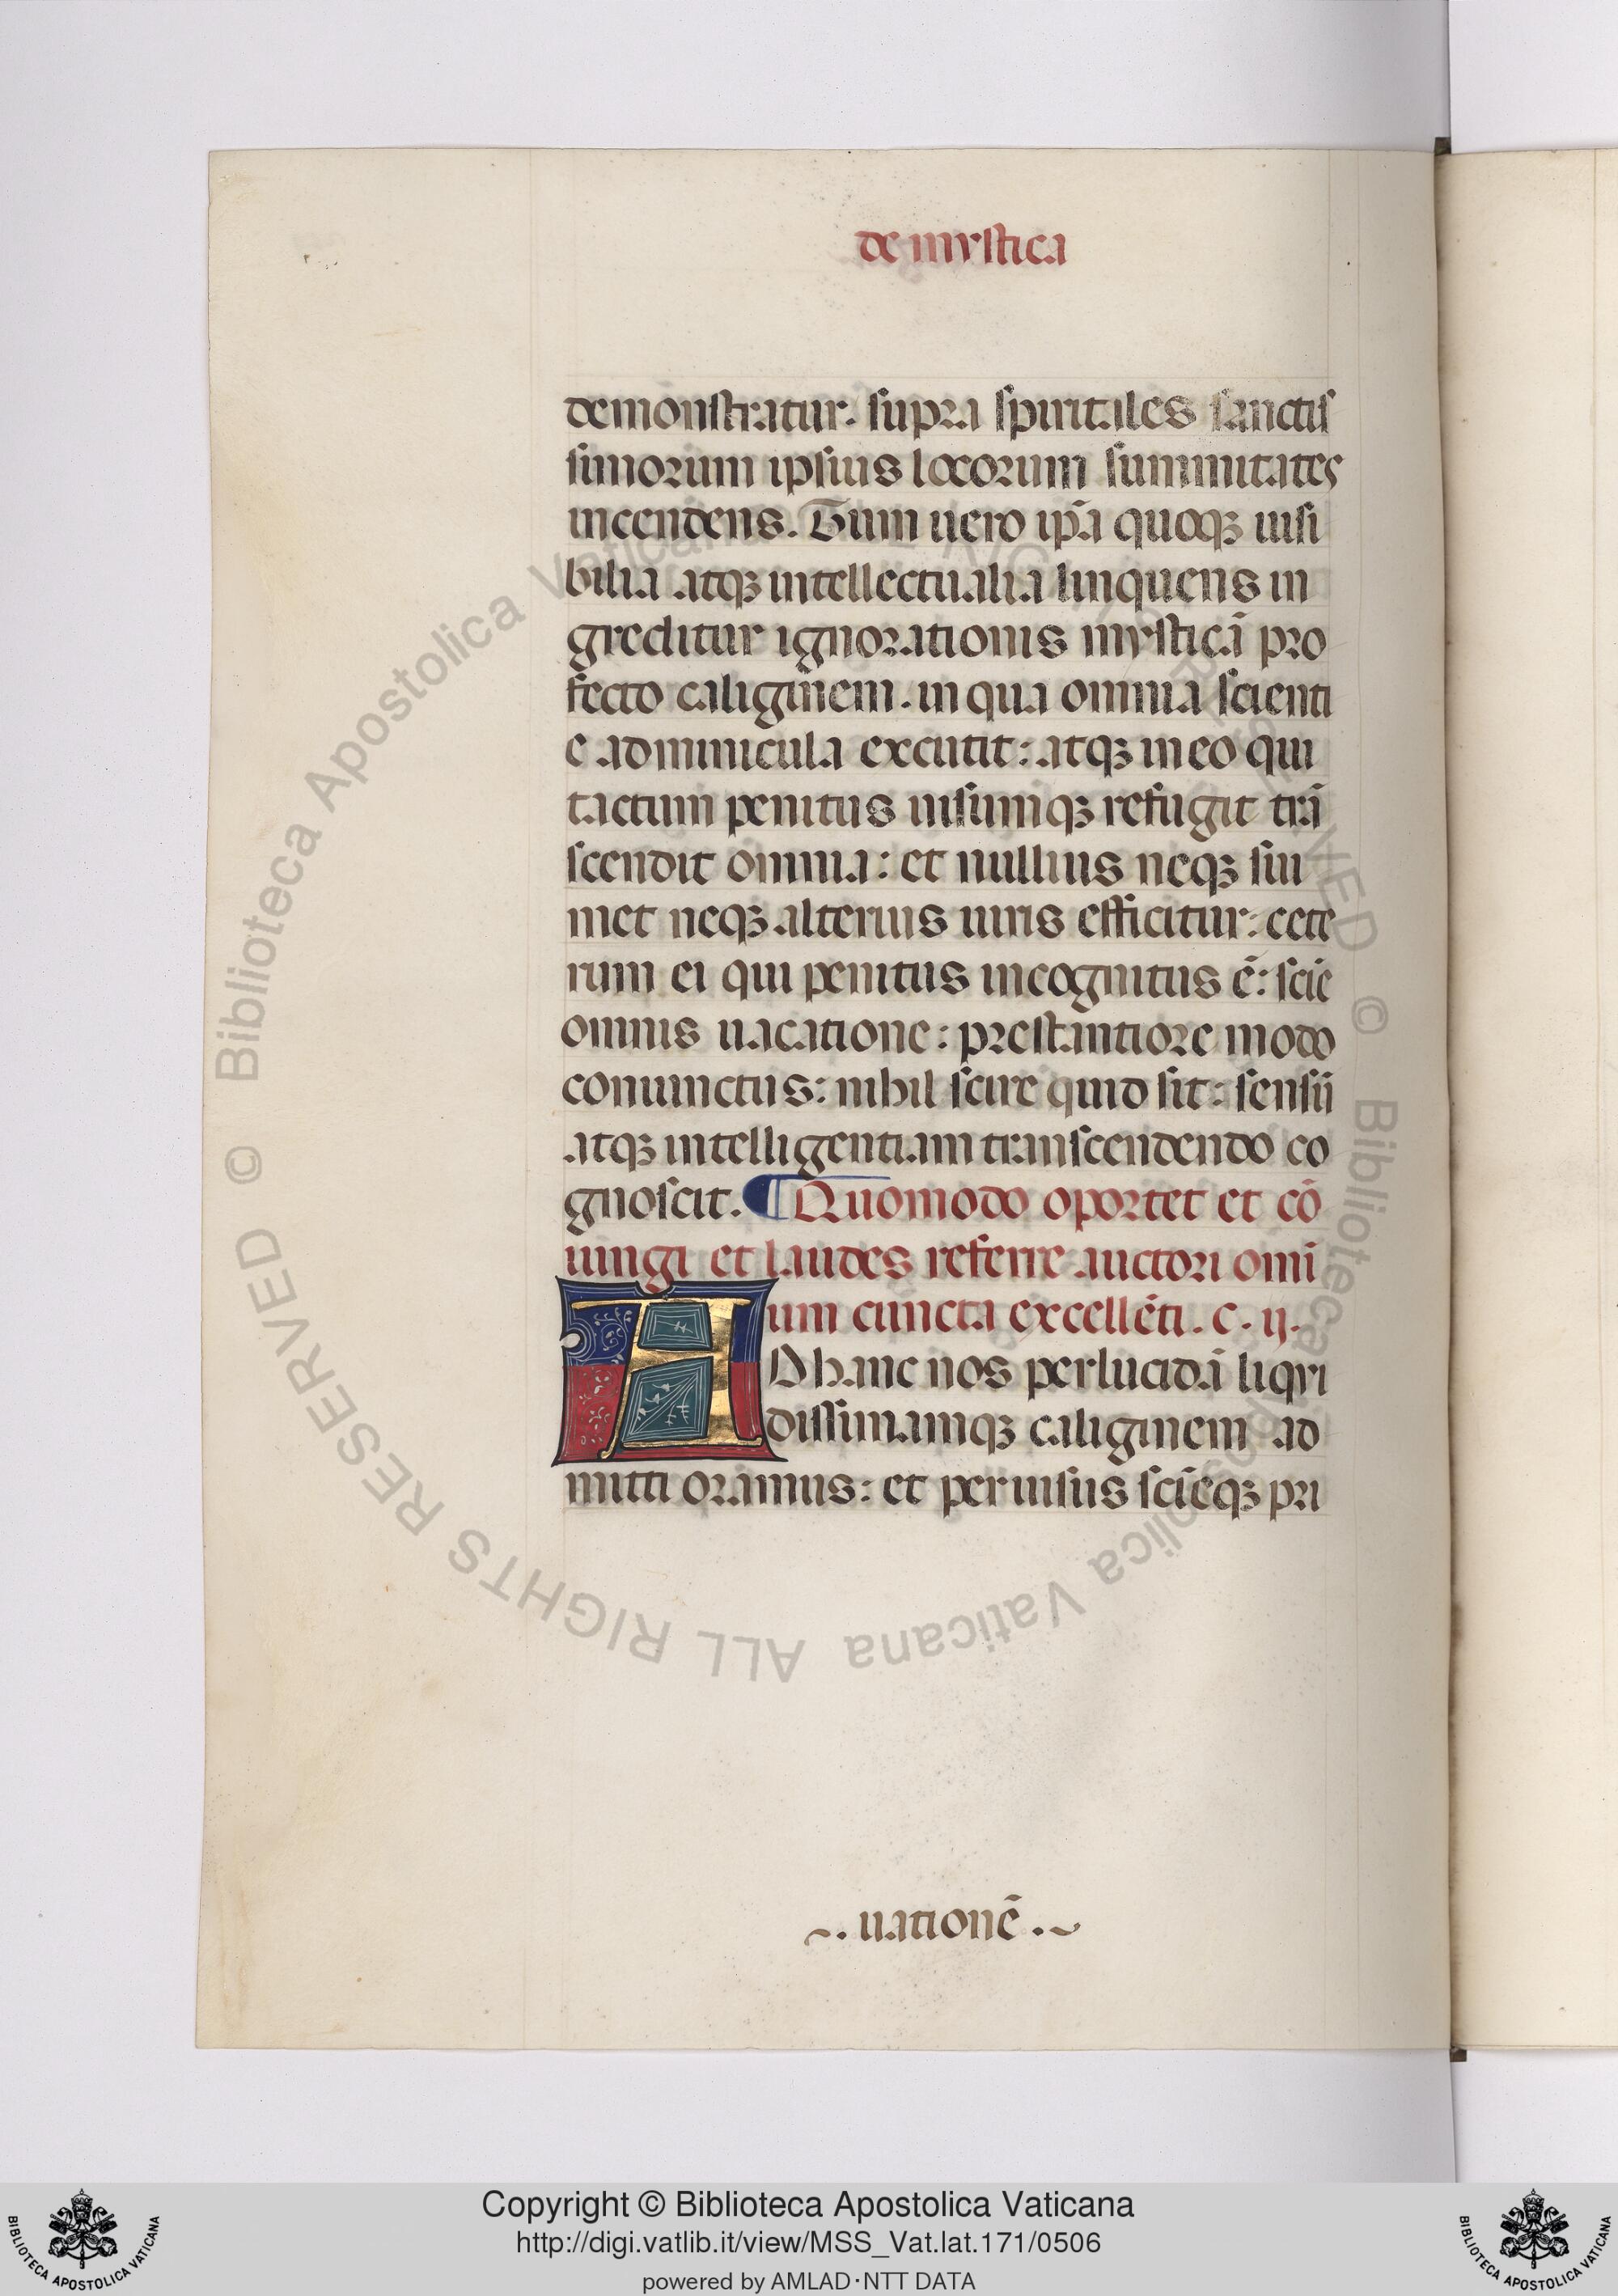 de mystica
demonstratur. supra spiritales sanctis
simorum ipsius locorum summitates
incendens. Tum uero ip̄a quoqꝫ uisi
bilia atqꝫ intellectualia linquens in
greditur ignorationis mysticā pro
fecto caliginem. in qua omnia scienti
e adminicula excutit: atqꝫ in eo qui
tactum penitus uisumqꝫ refugit trā
scendit omnia: et nullius neqꝫ sui
met neqꝫ alterius iuris efficitur: cete
rum ei qui penitus incognitus ē: sciē
omnis uacatione: prestantiore modo
coniunctus: nihil scire quid sit: sensū
atqꝫ intelligentiam transcendendo co
gnoscit. ¶ Quomodo oportet et cō
iungi et laudes referre auctori omī
um cuncta excellēti. c. ij.
AD hanc nos perlucidā liqui
dissimamqꝫ caliginem ad
mitti oramus: et per uisus sciēqꝫ pri
~. uationē .~
© Biblioteca Apostolica Vaticana ALL RIGHTS RESERVED © Biblioteca Apostolica Vaticana ALL RIGHTS RESERVED
Copyright © Biblioteca Apostolica Vaticana
http://digi.vatlib.it/view/MSS_Vat.lat.171/0506
powered by AMLAD·NTT DATA
BIBLIOTECA APOSTOLICA VATICANA
BIBLIOTECA APOSTOLICA VATICANA